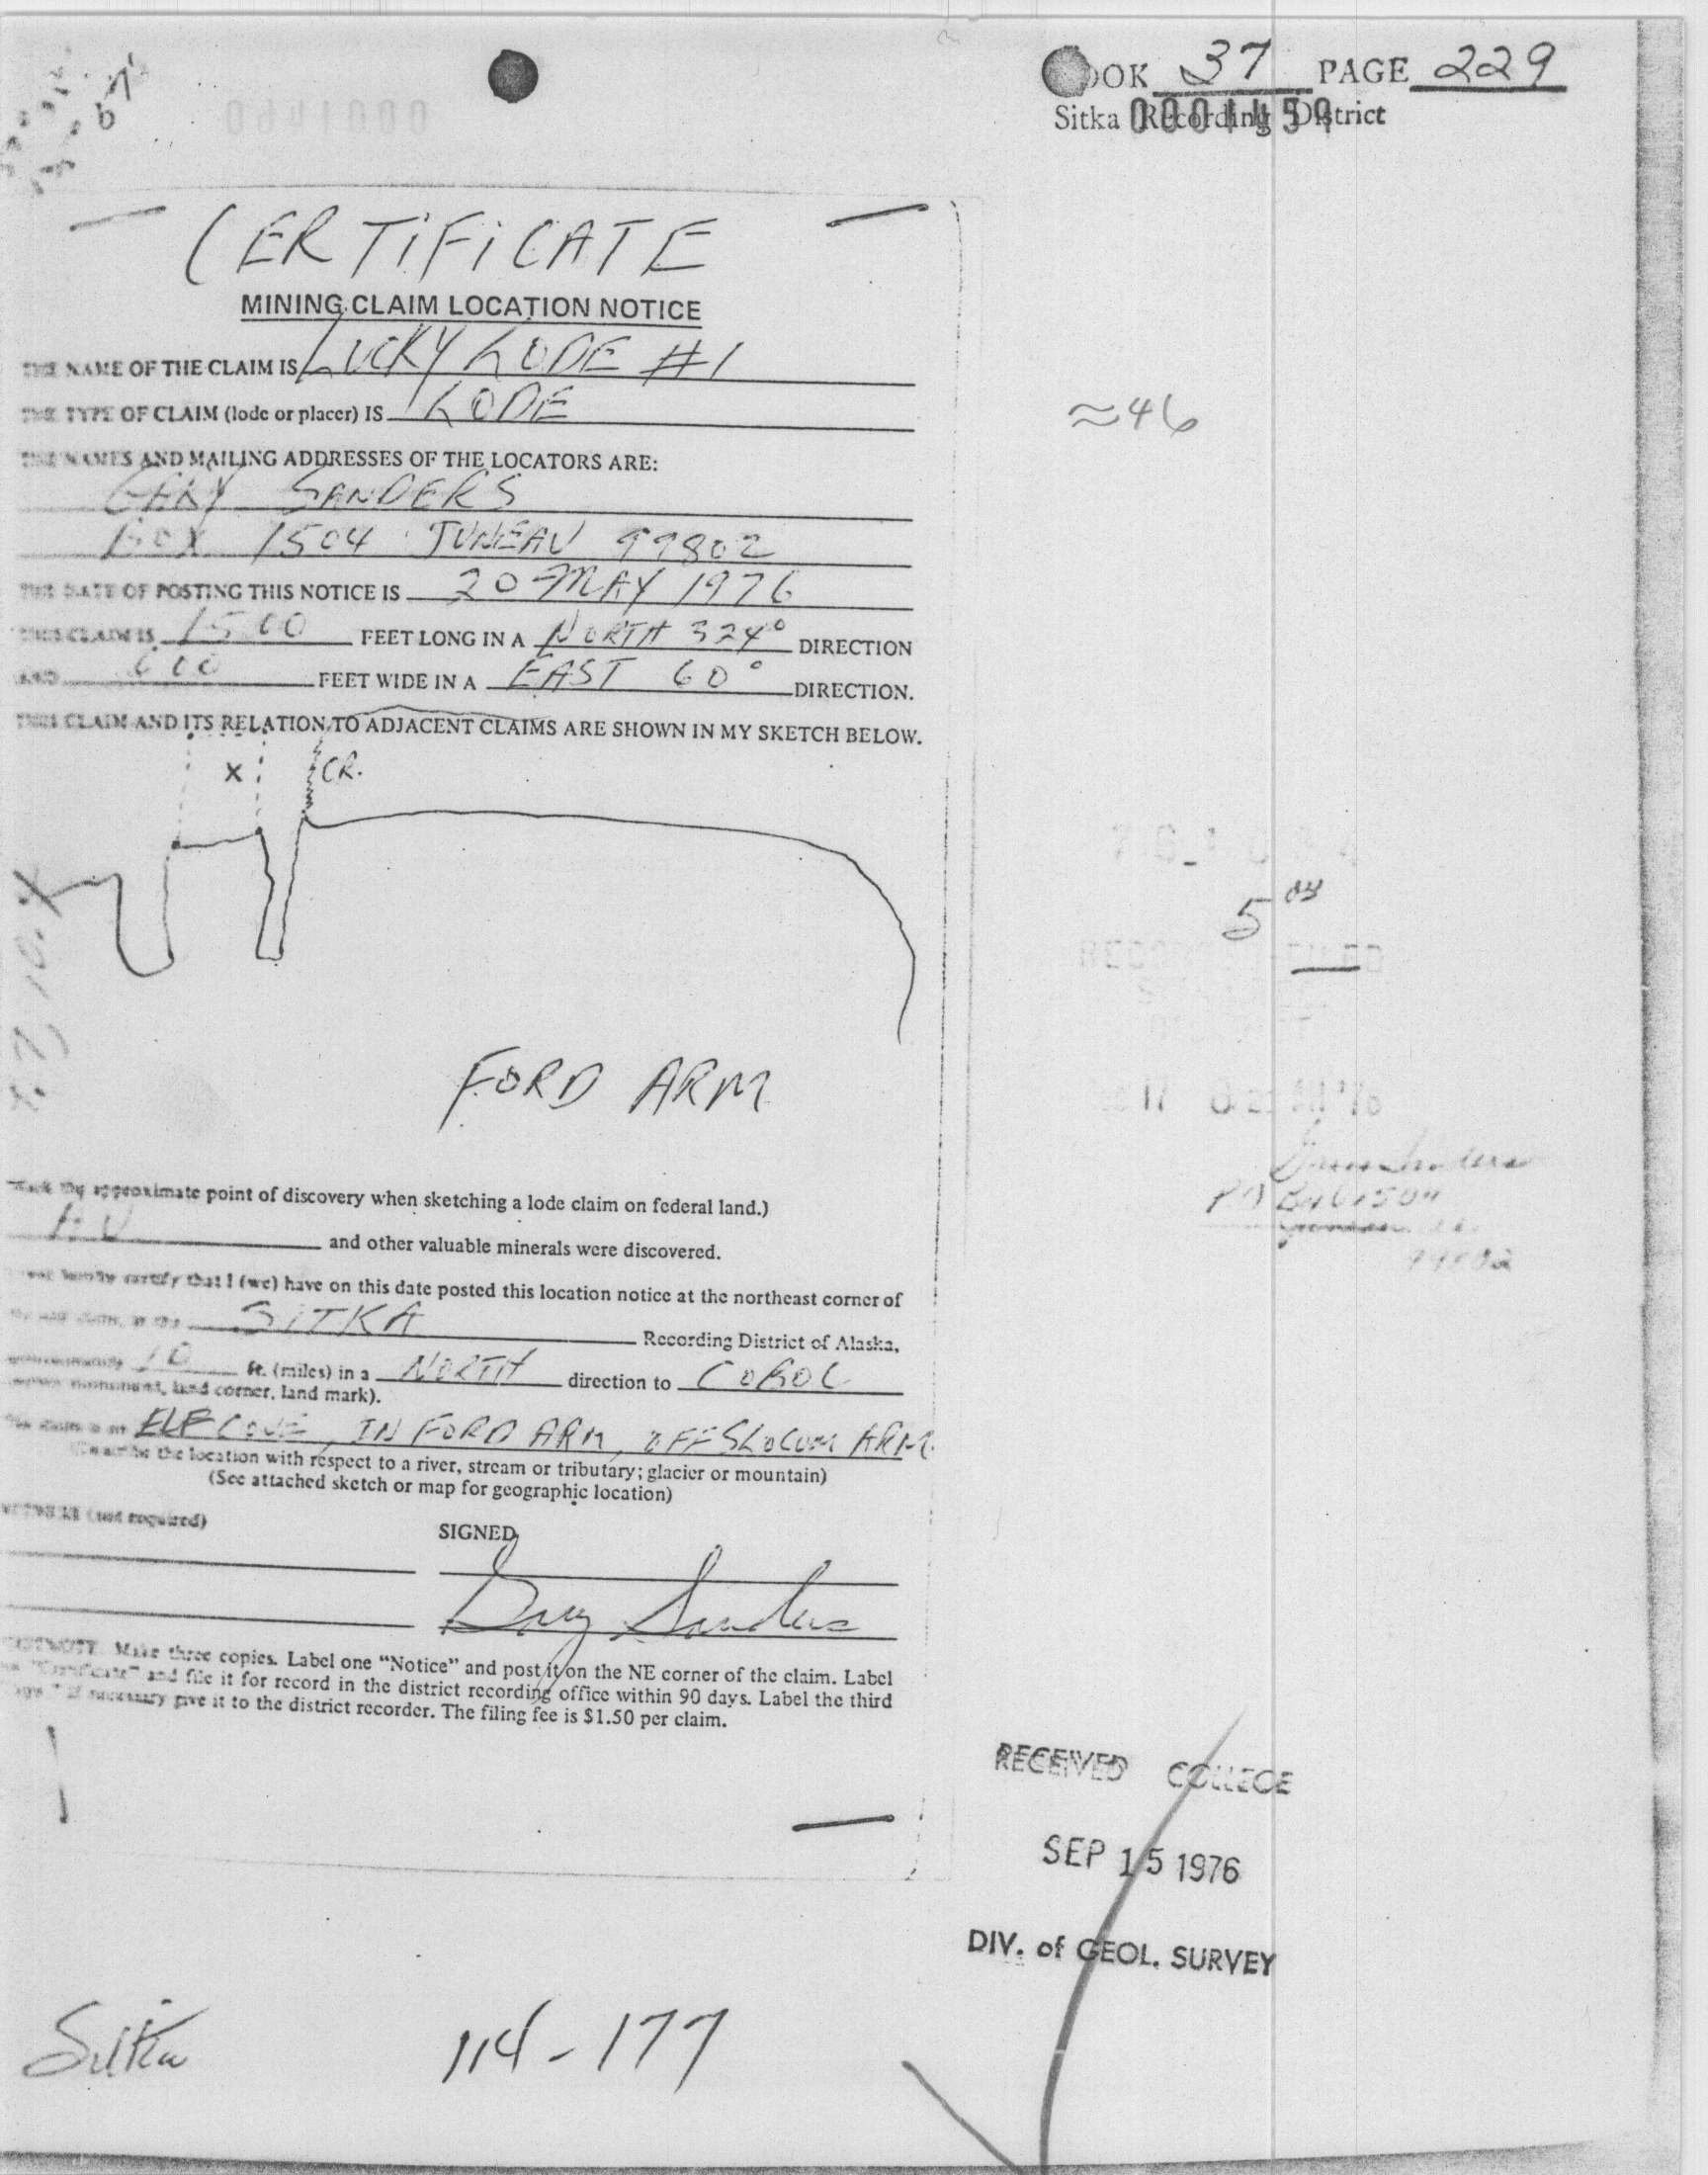 BOOK 37 PAGE 229
Sitka Recording District
0001459
CERTIFICATE
MINING CLAIM LOCATION NOTICE
THE NAME OF THE CLAIM IS LUCKY LODE #1
THE TYPE OF CLAIM (lode or placer) IS LODE
≈46
THE NAMES AND MAILING ADDRESSES OF THE LOCATORS ARE:
GARY SANDERS
BOX 1504 JUNEAU 99802
THE DATE OF POSTING THIS NOTICE IS 20 MAY 1976
THIS CLAIM IS 1500 FEET LONG IN A NORTH 324° DIRECTION
AND 600 FEET WIDE IN A EAST 60° DIRECTION.
THIS CLAIM AND ITS RELATION TO ADJACENT CLAIMS ARE SHOWN IN MY SKETCH BELOW.
X CR.
5
FORD ARM
approximate point of discovery when sketching a lode claim on federal land.)
AU and other valuable minerals were discovered.
hereby certify that I (we) have on this date posted this location notice at the northeast corner of
SITKA Recording District of Alaska,
approximately 10 ft. (miles) in a NORTH direction to COBOL
monument, land corner, land mark).
ELF COVE, IN FORD ARM, OFF SLOCUM ARM.
the location with respect to a river, stream or tributary; glacier or mountain)
(See attached sketch or map for geographic location)
WITNESS (not required)
SIGNED
Gary Sanders
FOOTNOTE. Make three copies. Label one “Notice” and post it on the NE corner of the claim. Label
"Certificate" and file it for record in the district recording office within 90 days. Label the third
if necessary give it to the district recorder. The filing fee is $1.50 per claim.
RECEIVED COLLEGE
SEP 15 1976
DIV. of GEOL. SURVEY
Sitka 114-177